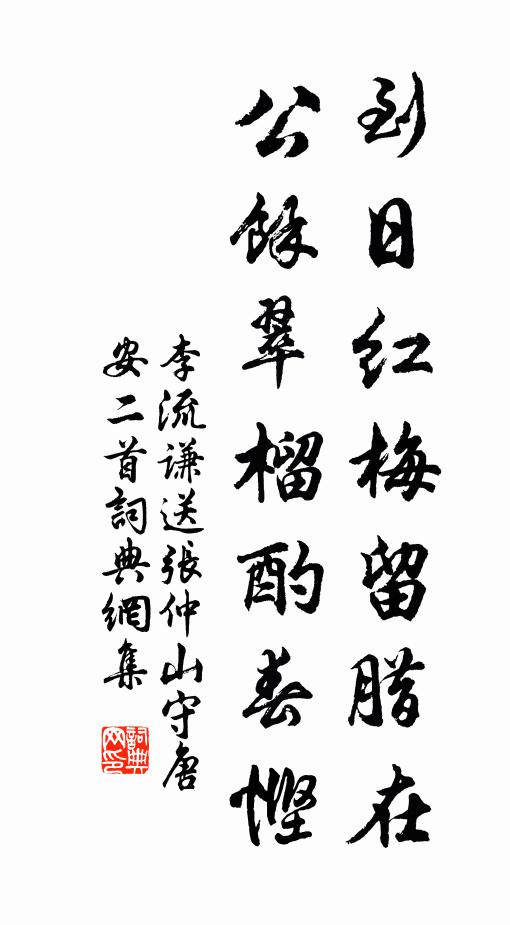 到日红梅留腊在
公餘翠榴酌春慳
李流谦送張仲山守唐
安二首詞典網集
詞典网印